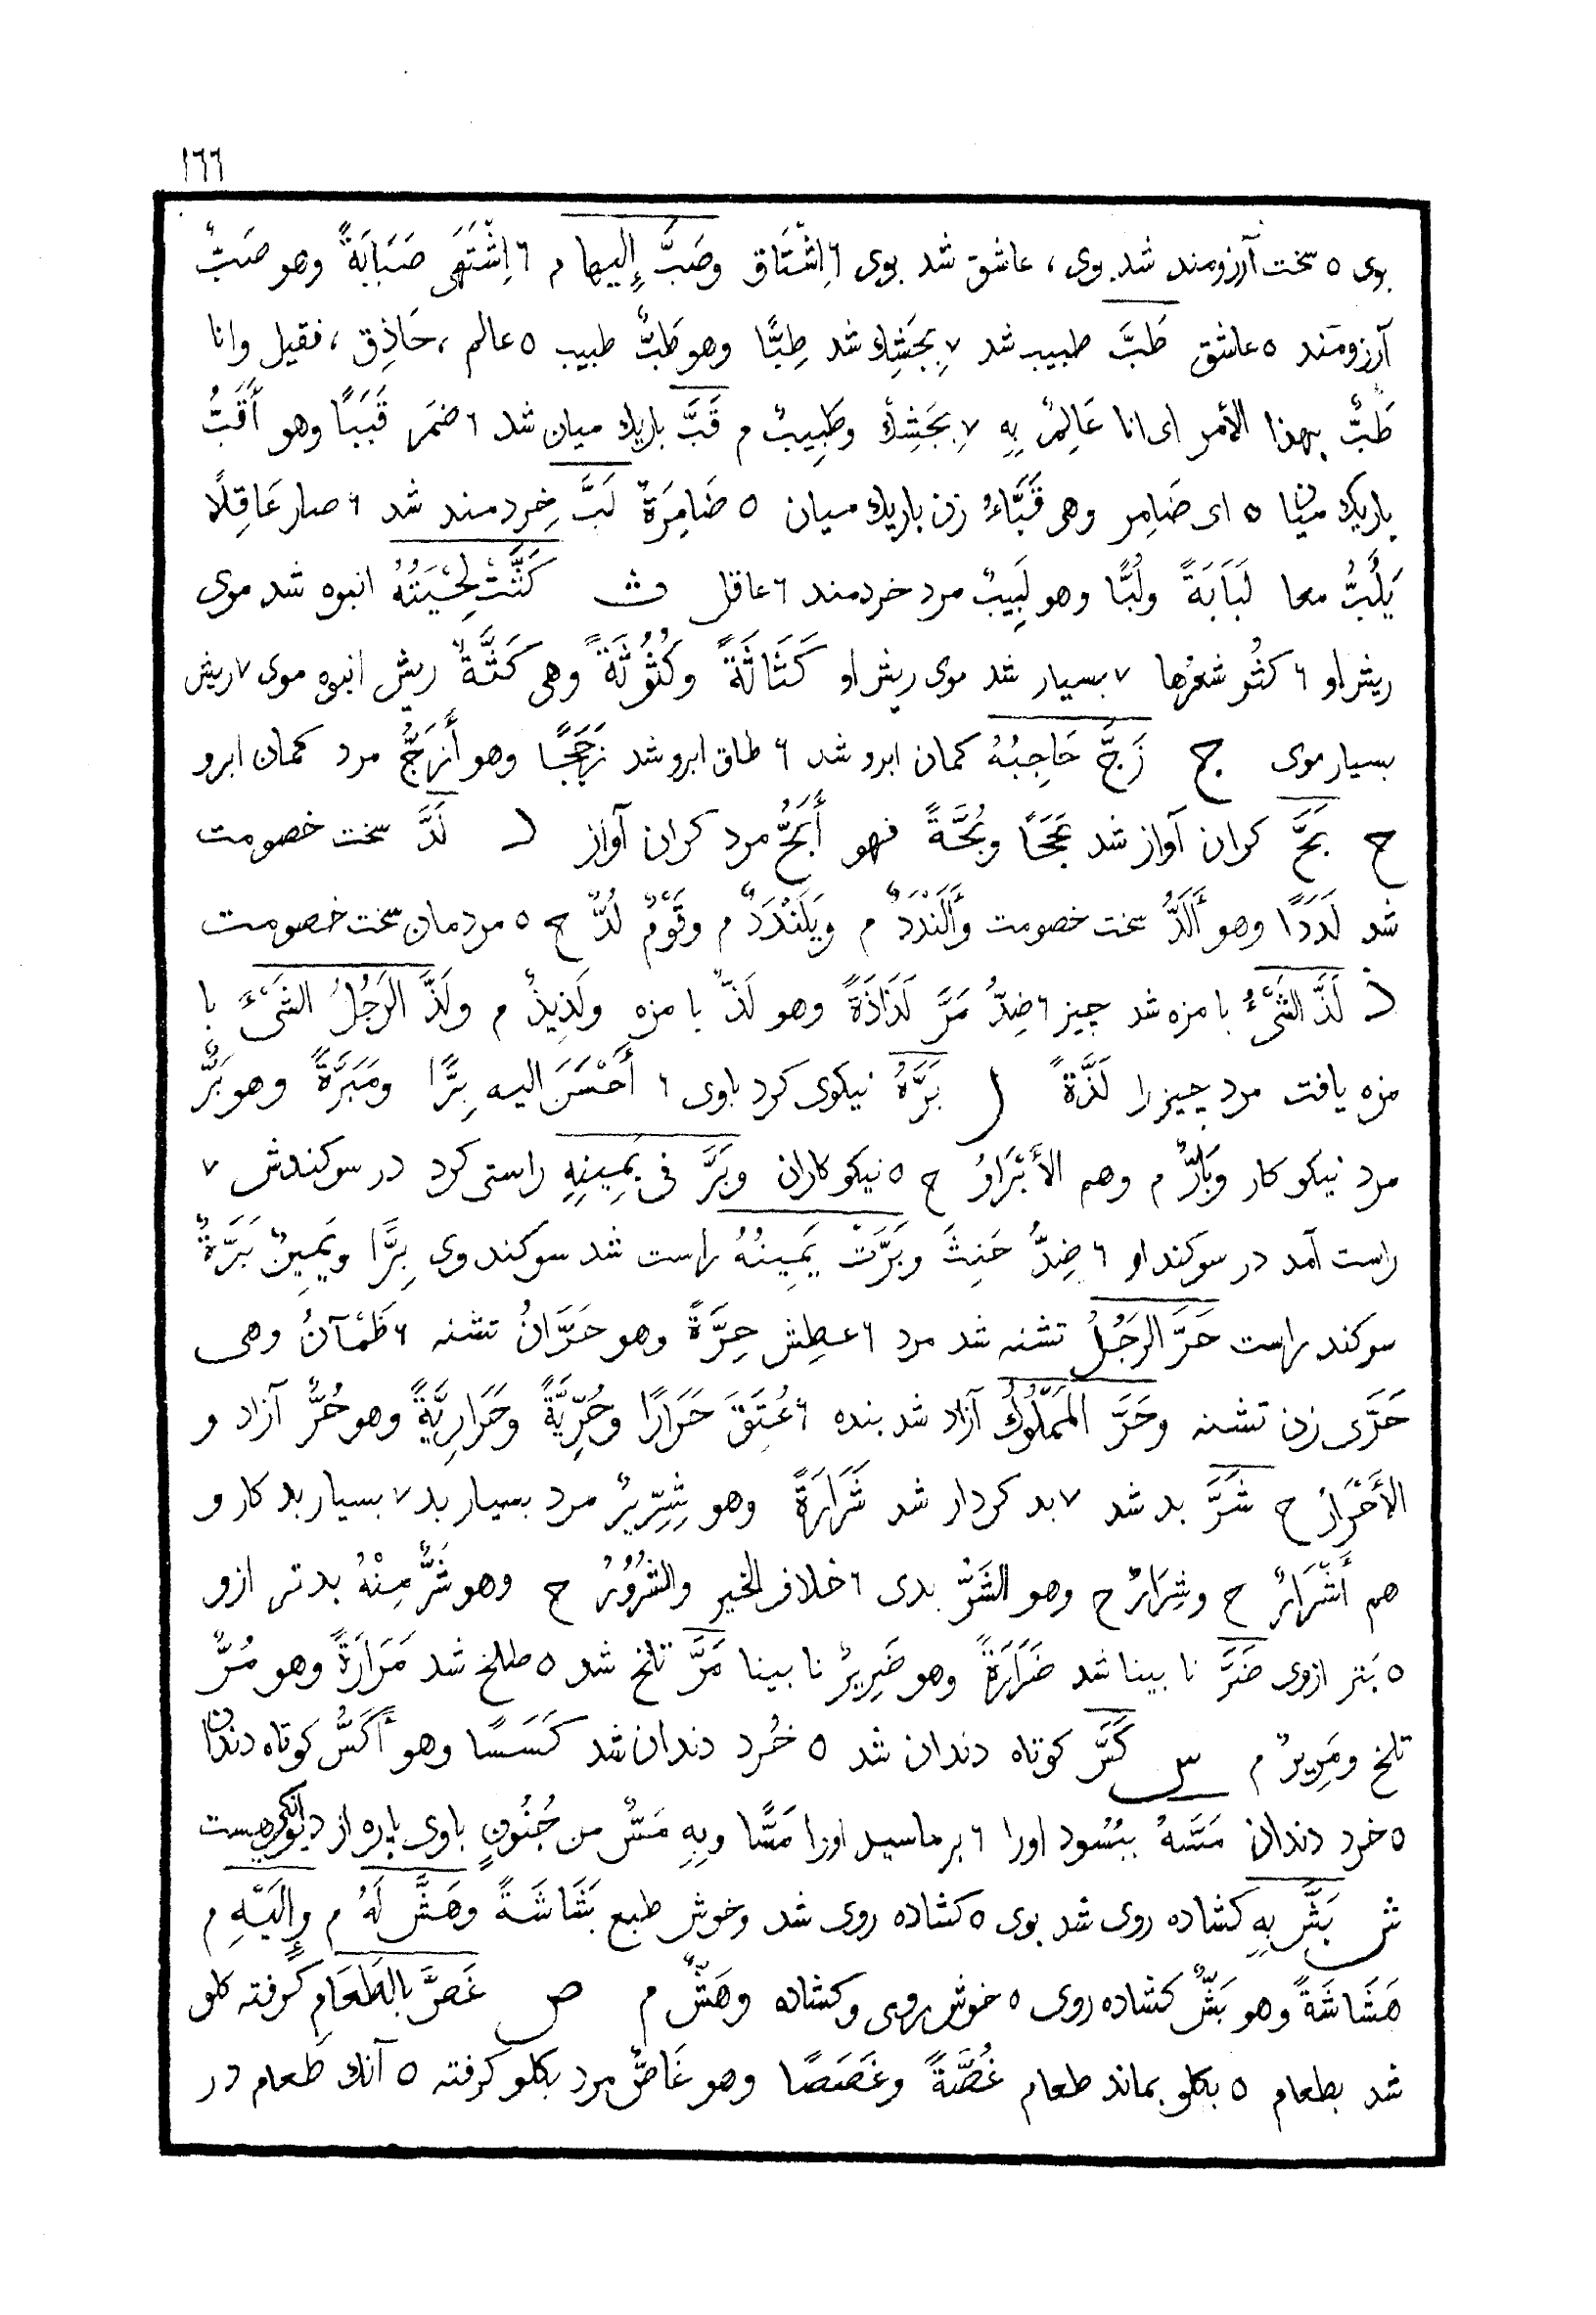 ١٦٦
بوی ٥ سخت آرزومند شد بوی ، عاشق شد بوی ٦ اِشْتَاق وصَبَّ إِليها م ٦ اِشْتَهَى صَبَابَةً وهو صَبٌّ
آرزومَند ٥ عاشق طَبَّ طبیب شد ٧ بِجَشِك شد طِبًّا وهو طَبٌّ طبیب ٥ عالم ، حَاذِق ، فقیل وانا
طَبٌّ بهذا الأمر ای انا عَالِمٌ بِهِ ٧ بِجَشِكْ وطَبِيبٌ م قَبَّ باریك میان شد ٦ ضمَر قَبَبًا وهو أَقَبُّ
باریك میان ٥ ای ضَامِر وهی قَبَّاءُ زن باریك میان ٥ ضَامِرَةٌ لَبَّ خردمند شد ٦ صار عَاقِلًا
يَلَُبُّ معا لَبَابَةً ولُبًّا وهو لَبِيبٌ مرد خردمند ٦ عاقل ث كَثَّتْ لِحْيَتُهُ انبوه شد موی
ریش او ٦ كثُر شعرُها ٧ بسیار شد موی ریش او كَثَاثَةً وكُثُوثَةً وهی كَثَّةٌ ریش انبوه موی ٧ ریش
بسیار موی ج زَجَّ حَاجِبُهُ كمان ابرو شد ٦ طاق ابرو شد زَجَجًا وهو أَزَجُّ مرد كمان ابرو
ح بَحَّ كران آواز شد بَحَحًا وبُحَّةً فهو أَبَحُّ مرد كران آواز د لَدَّ سخت خصومت
شد لَدَدًا وهو أَلَدُّ سخت خصومت وأَلَنْدَدٌ م ويَلَنْدَدٌ م وقَوْمٌ لُدٌّ ج ٥ مردمان سخت خصومت
ذ لَذَّ الشَىْءُ با مزه شد چیز ٦ ضِدُّ مَرَّ لَذَاذَةً وهو لَذٌّ با مزه ولَذِيذٌ م ولَذَّ الرَجُلُ الشَىْءَ با
مزه یافت مرد چیز را لَذَّةً ر بَرَّهُ نیکوی کرد باوی ٦ أَحْسَنَ الیه بِرًّا ومَبَرَّةً وهو بَرٌّ
مرد نیکو کار وبَارٌّ م وهم الأَبْرَارُ ج ٥ نیکو کاران وبَرَّ فی يَمِينِهِ راستی کرد در سوکندش ٧
راست آمد در سوکند او ٦ ضِدُّ حَنِثَ وبَرَّتْ يَمِينُهُ راست شد سوکند وی بِرًّا ويَمِينٌ بَرَّةٌ
سوکند راست حَرَّ الرَجُلُ تشنه شد مرد ٦ عطِش حِرَّةً وهو حَرَّانُ تشنه ٦ ظَمْآنُ وهی
حَرَّى زن تشنه وحَرَّ المَمْلُوكُ آزاد شد بنده ٦ عُتِقَ حَرَارًا وحُرِّيَّةً وحَرَارِيَّةً وهو حُرٌّ آزاد و
الأَحْرَارُ ج شَرَّ بد شد ٧ بد کردار شد شَرَارَةً وهو شِرِّيرٌ مرد بسیار بد ٧ بسیار بد کار و
هم أَشْرَارٌ ج وشِرَارٌ ج وهو الشَرُّ بدی ٦ خلاف الخیر والشُرُورُ ج وهو شَرٌّ مِنْهُ بدتر ازو
٥ بَتر ازوی ضَرَّ نا بینا شد ضَرَارَةً وهو ضَرِيرٌ نا بینا مَرَّ تلخ شد ٥ طلخ شد مَرَارَةً وهو مُرٌّ
تلخ ومَرِيرٌ م س كَسَّ کوتاه دندان شد ٥ خُرد دندان شد كَسَسًا وهو أَكَسُّ کوتاه دندان
٥ خرد دندان مَسَّهُ ببُسُود اورا ٦ برماسید اورا مَسًّا وبِهِ مَسٌّ من جُنُونٍ باوی پاره از دیوانکی هست
ش بَشَّ بِهِ کشاده روی شد بوی ٥ کشاده روی شد وخوش طبع بَشَاشَةً وهَشَّ لَهُ م وإِلَيْهِ م
هَشَاشَةً وهو بَشٌّ کشاده روی ٥ خوش روی وکشاده وهَشٌّ م ص غَصَّ بالطَعَامِ کرفته کلو
شد بطعام ٥ بکلو بماند طعام غُصَّةً وغَصَصًا وهو غَاصٌّ مرد بکلو کرفته ٥ آنك طعام در